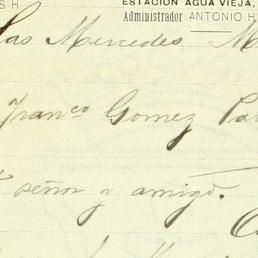 ESTACION AGUA VIEJA,
Administrador ANTONIO H
Las Mercedes
Franco Gomez
señor y amigo.